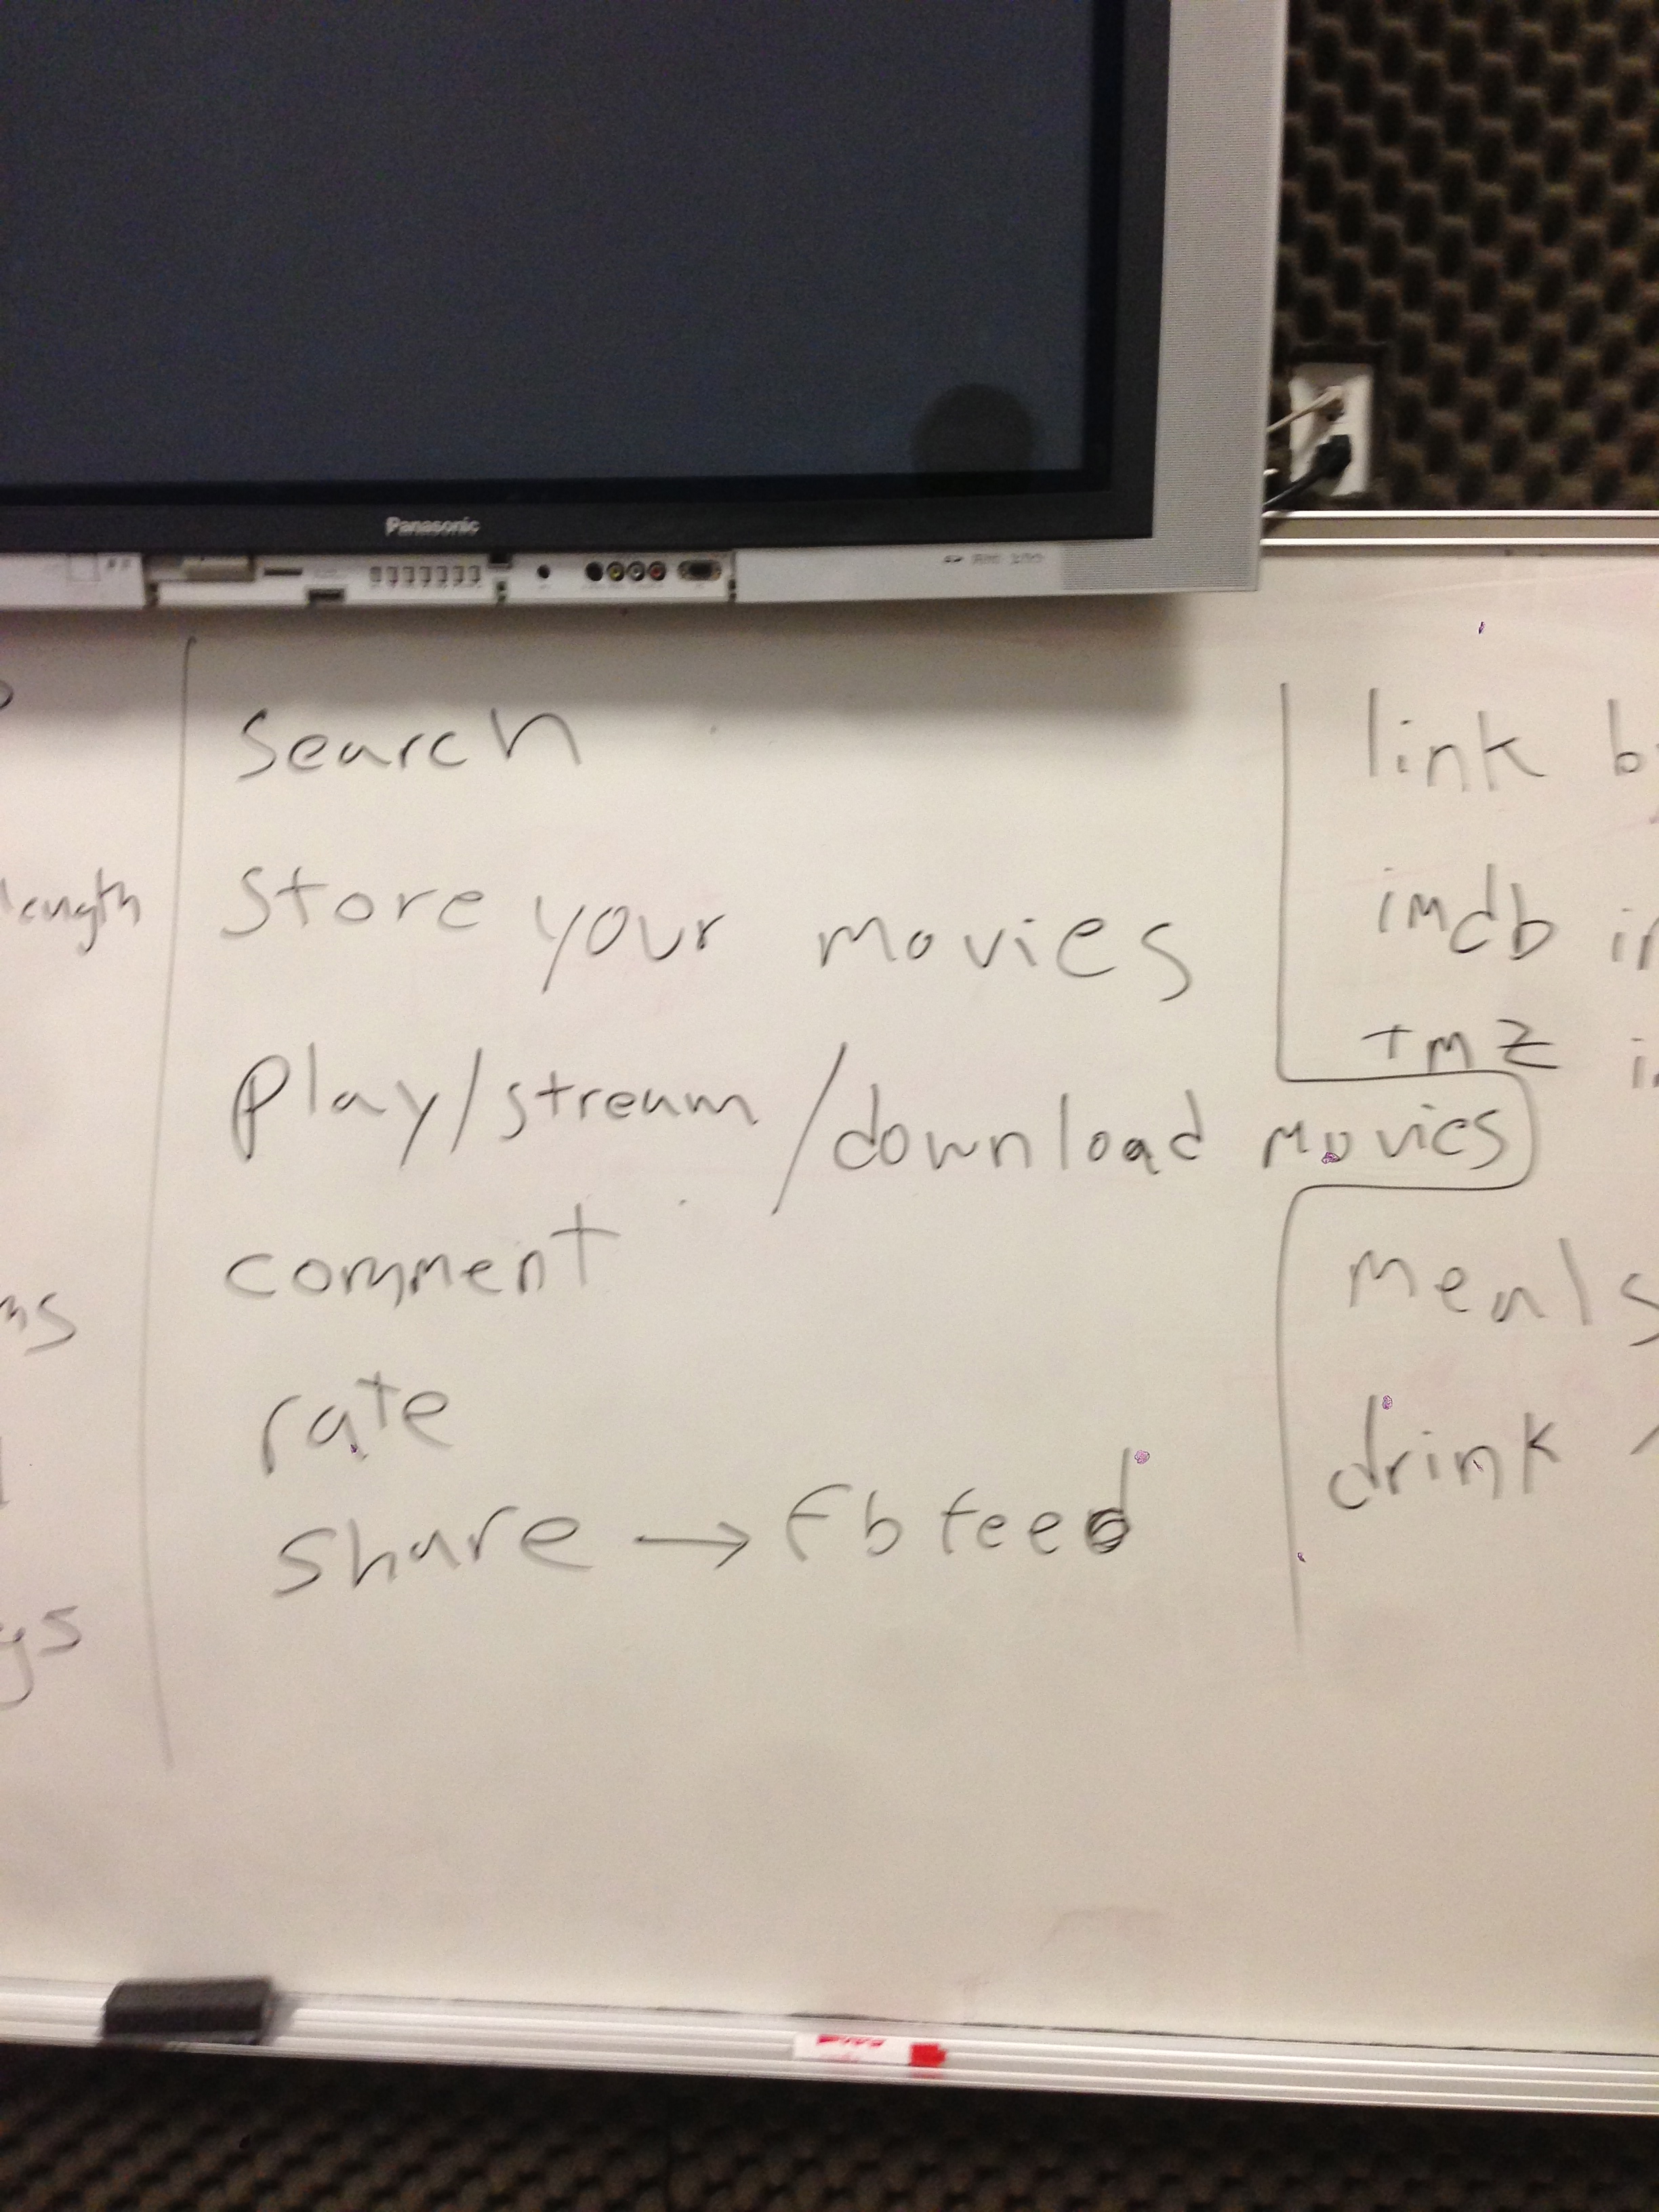 Panasonic
search
store your movies
play/stream/download movies
comment
rate
share → fb feed
length
link
imdb
tmz
meals
drink